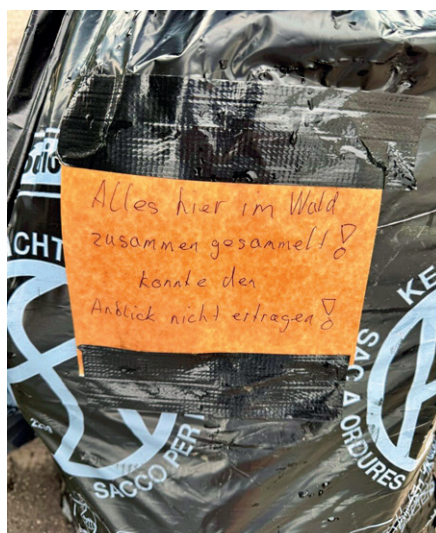 Alles hier im Wald
zusammen gesammelt!
konnte den
Anblick nicht ertragen!
SACCO PER
SAC A ORDURES
KE
ACHT